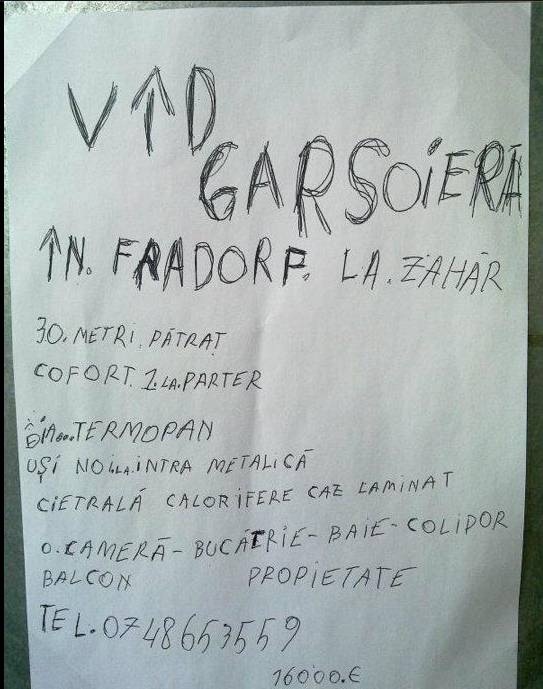 V↑D
GARSOIERĂ
↑N. FRADORF. LA. ZAHĂR
30. METRI. PĂTRAȚ
COFORT. 1. LA. PARTER
TERMOPAN
UȘI NOI LA. INTRA METALICĂ
CIETRALĂ CALORIFERE CAZ LAMINAT
O. CAMERĂ - BUCĂTRIE - BAIE - COLIDOR
BALCON PROPIETATE
TEL. 0748653559
16000.€